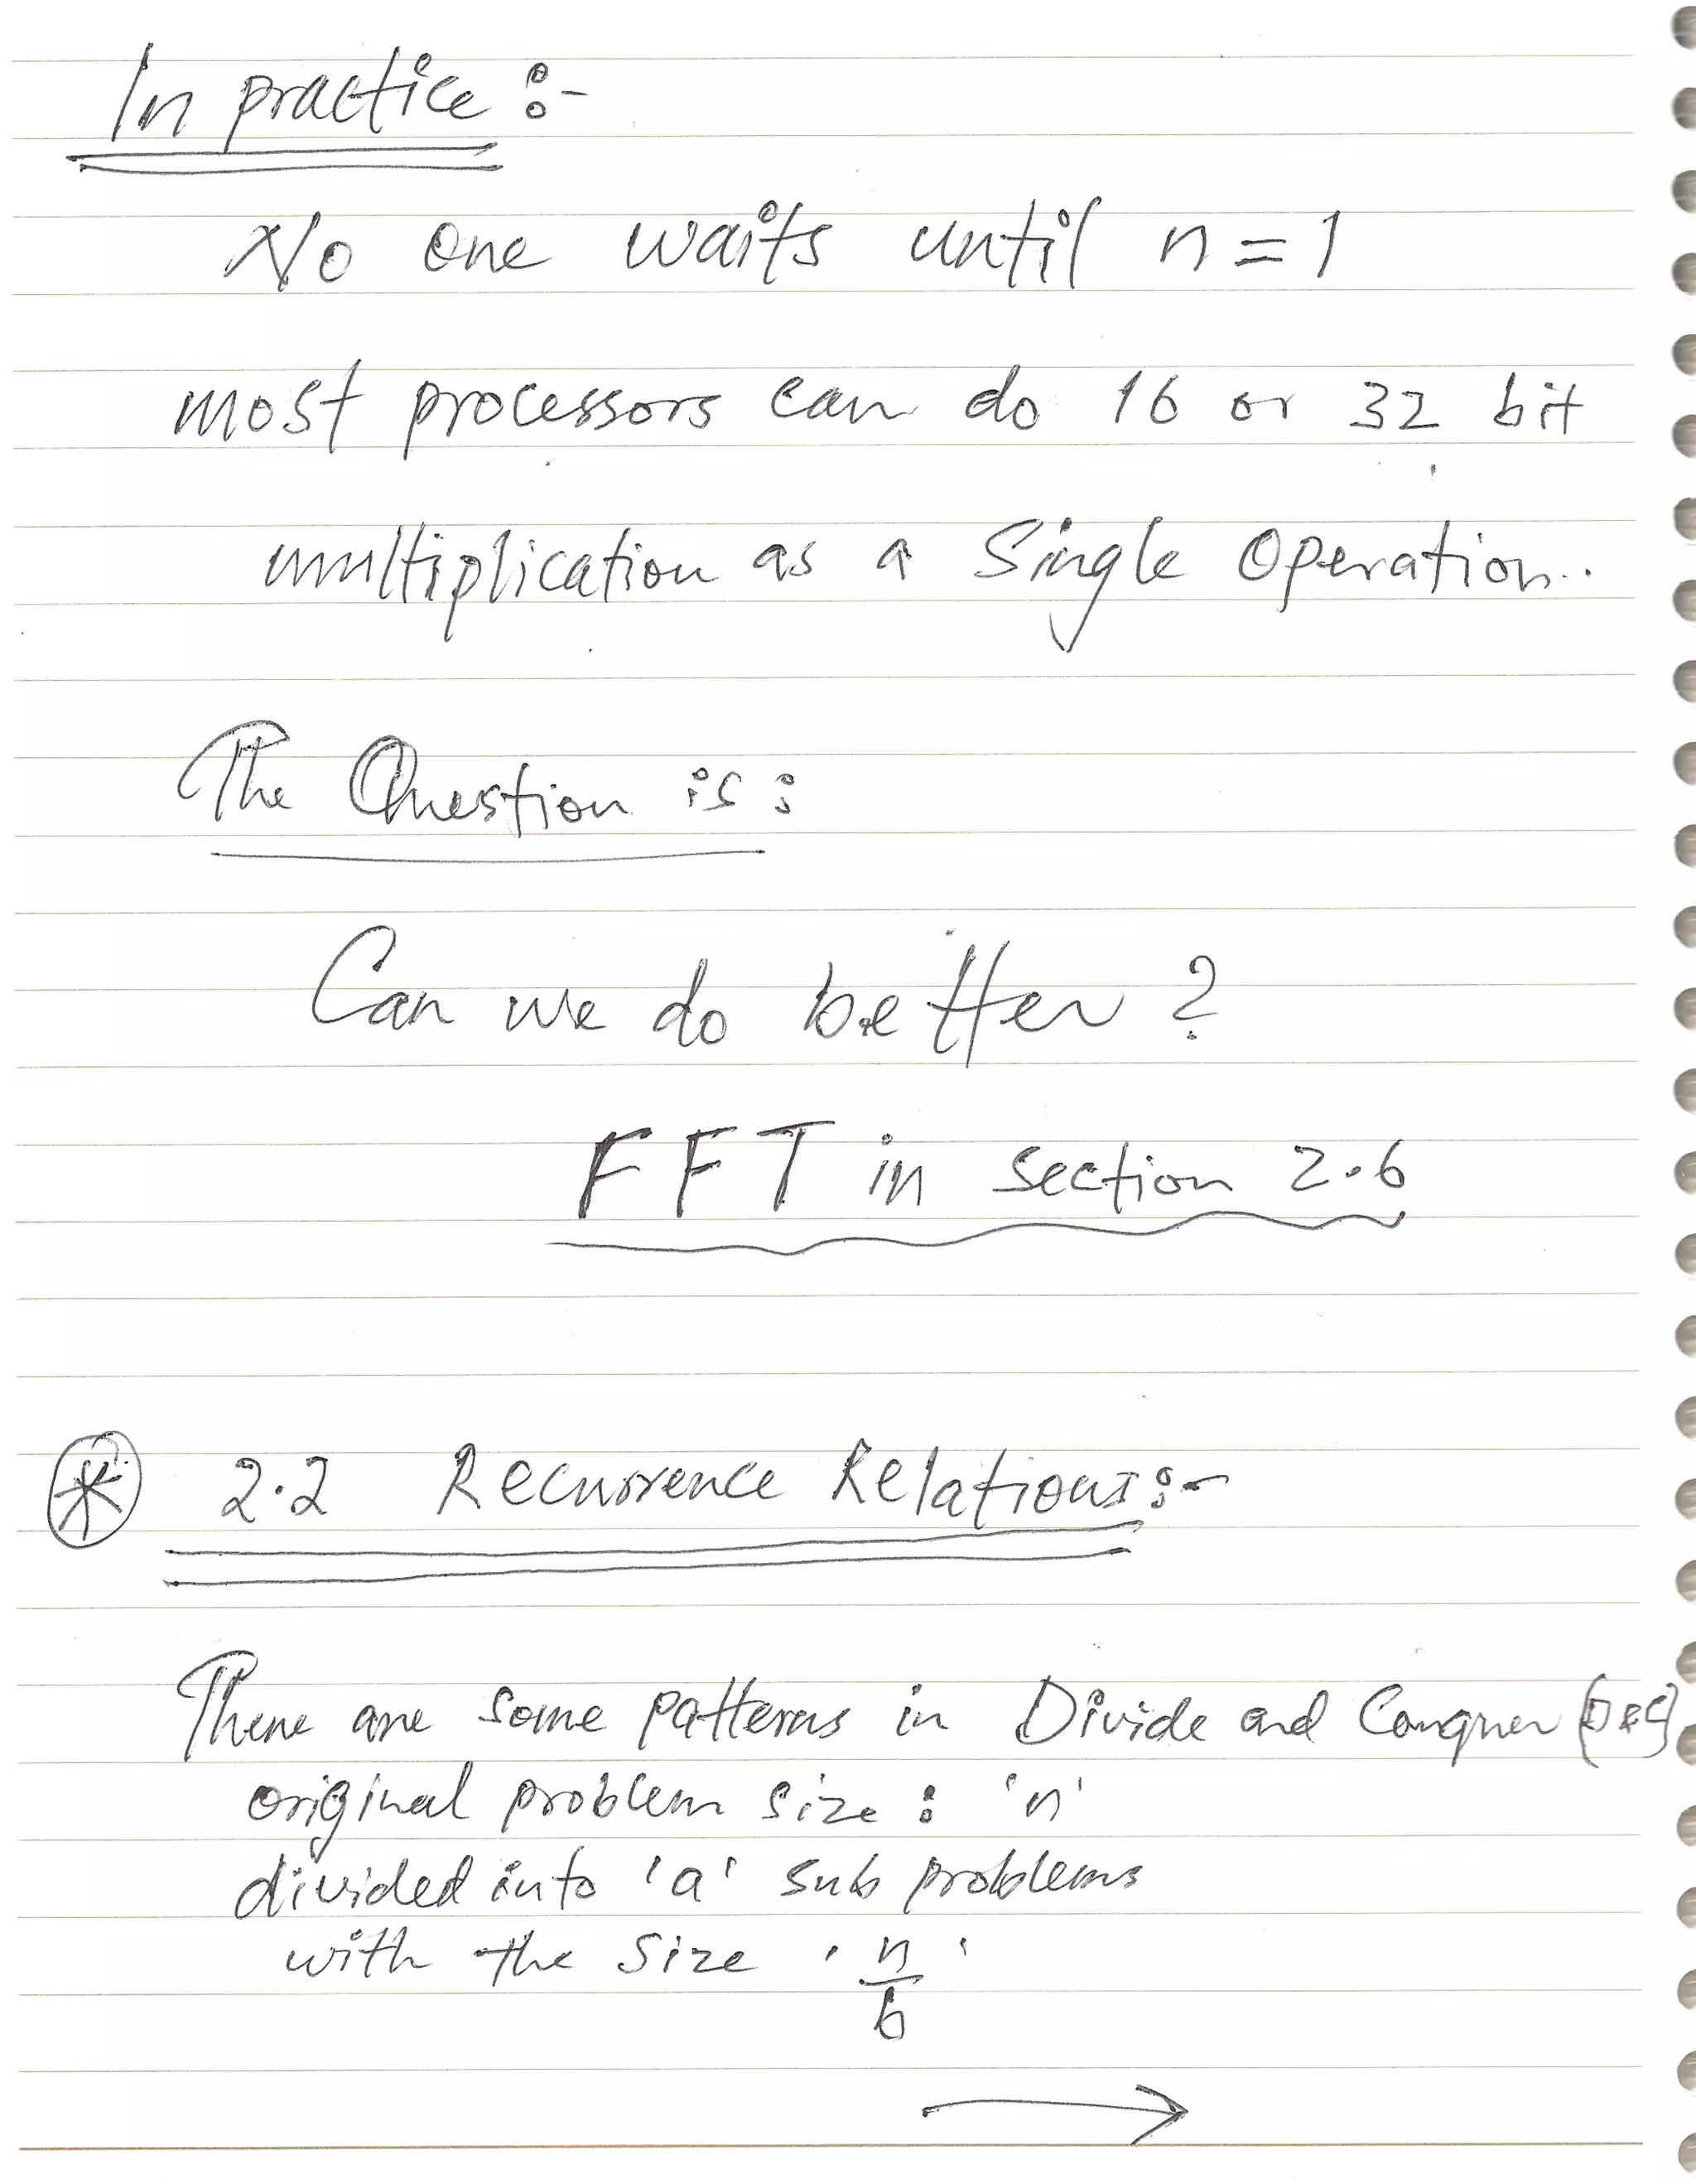 In practice :-
No one waits until n = 1
most processors can do 16 or 32 bit
multiplication as a Single Operation..
The Question is :
Can we do better ?
FFT in section 2.6
* 2.2 Recurrence Relations :-
There are some patterns in Divide and Conquer (D&C)
original problem size : 'n'
divided into 'a' sub problems
with the size 'n/b'
→